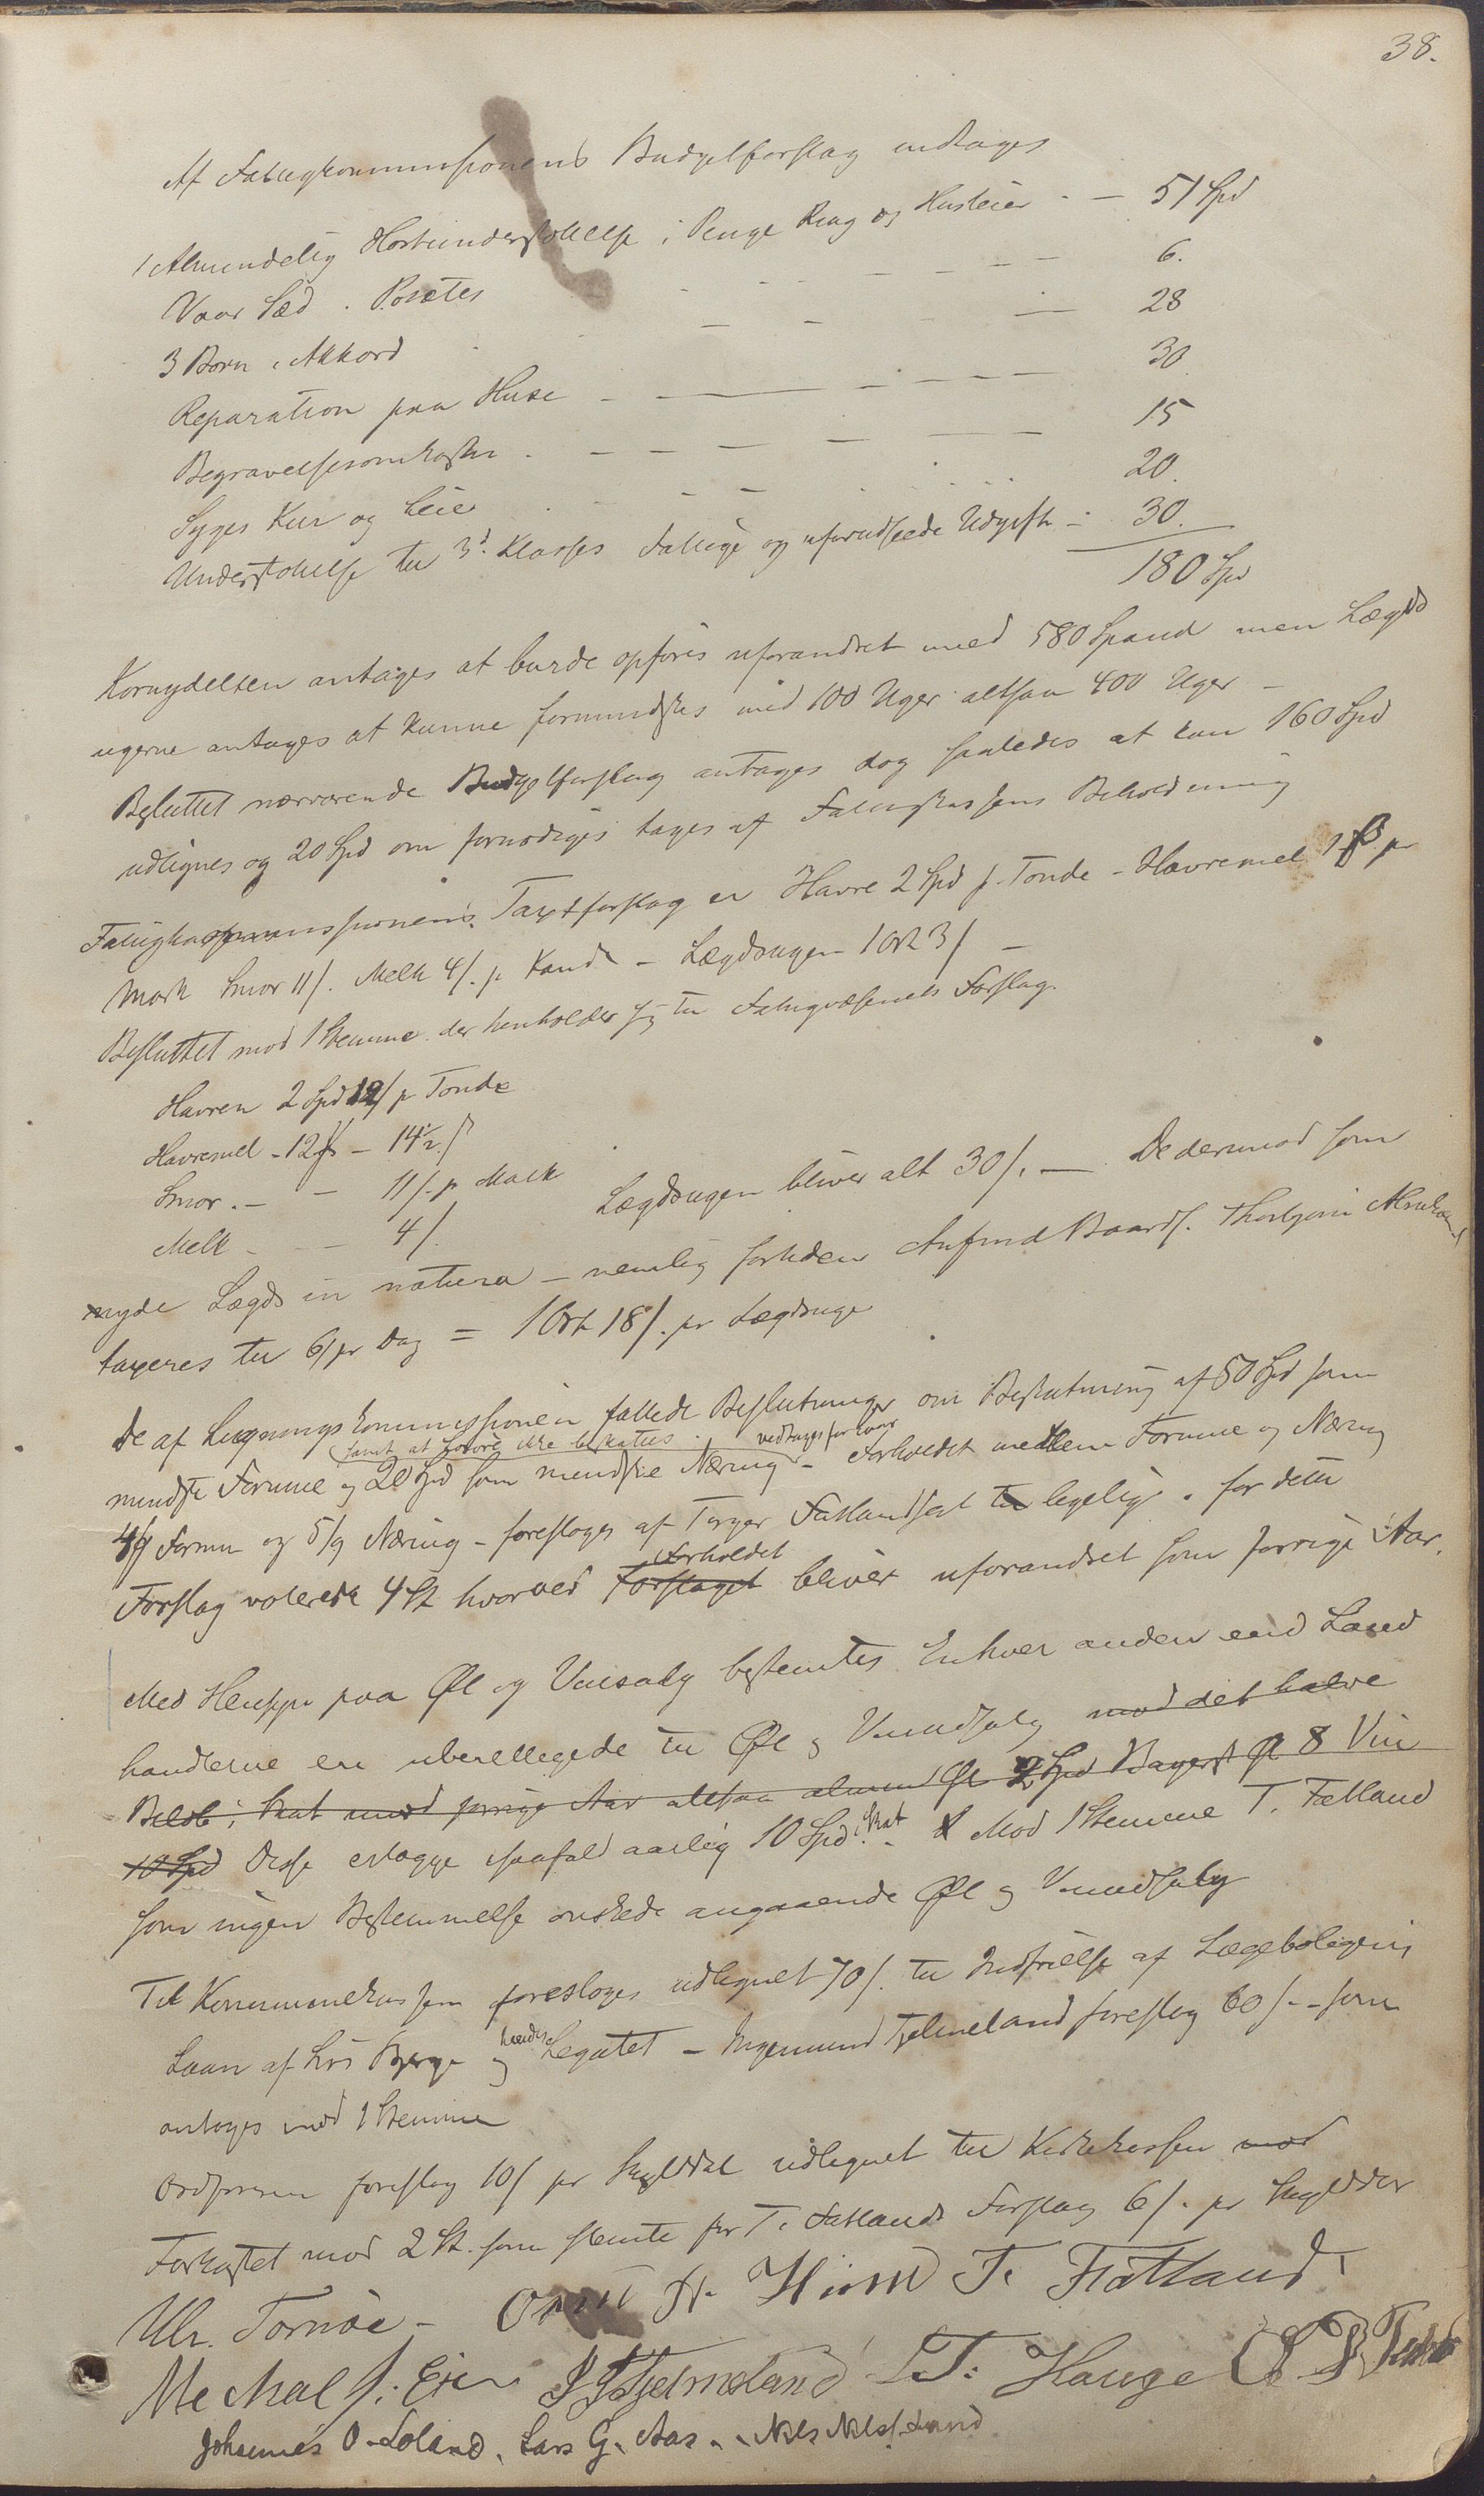 38.
Af Fattigkommissionens Budgetforslag indtages
1 Almindelig Hostunderstøttelse i Penge Krag og Husleier - - 51 Spd
Vaar Sæd. Potetes - - - 6.
3 Børn i Akkord - - - 28
Reparation paa Huse - - - 30
Begravelsesomkoster - - - 15
Syges Kur og Leie - - - 20.
Understøttelse til 3d. Klasses Fattige og uforudseede Udgifter - 30.
180 Spd
Kornydelsen antages at burde opføres uforandret med 580 Spand men Lægds
ugerne antages at kunne formindskes med 100 Uger altsaa 400 Uger -
Besluttet nærværende Budgetforslag antages dog saaledes at kun 160 Spd
udlignes og 20 Spd om fornødiges tages af Fattigkassens Beholdning
Fattigkommissionens Taxtforslag er Havre 2 Spd p. Tønde - Havremel 1 ß pr
Mark Smør 11/. Melk 4/. p Kande - Lægdsugen 1 Ort 3/ -
Besluttet mod 1 Stemme der henholder sig til Fattigvæsenets Forslag.
Havren 2 Spd 12/ p Tønde
Havremel - 12 - 14½ ß
Smør . - - 11/. p Mark
Melk - - 4/. Lægdsugen bliver alt 30/. - De derimod som
nyde Lægd in natura - nemlig fortiden Anfind Baards. Thorbjørn
taxeres til 6/ pr Dag = 1 Ort 18/. pr Lægdsuge
De af Ligningskommissionen fattede Beslutninger om Beskatning af 50 Spd som
samt at ikke beskattes. vedtages forhaar
mindste Formue og 20 Spd som mindste Næring - Forholdet mellem Formue og Næring
4/9 Formu og 5/9 Næring - foresloges af Torger Fatland sat til ligelig. for dette
Forholdet
Forslag voterede 4 St hvorved Forslaget bliver uforandret som forrige Aar.
Med Hensyn paa Øl og Vinsalg bestemtes Enhver anden end Land
handlerne ere uberettigede til Øl og Vinudsalg mod det halve
Beløb i Skat imod forrige Aar altsaa alm Øl 2 Spd Bayersk Øl 8 Vin
10 Spd Disse erlægge isaafald aarlig 10 Spd i Skat - Mod 1 Stemme T. Fatland
som ingen Bestemmelse ønskede angaaende Øl og Vinudsalg
Til Kommunekassen foresloges udlignet 70/. til Indfrielse af Lægeboligens
Laan af Lars Bjerge og Legatet - Ingemund Tjelmeland foreslog 60/. - som
antages mod 1 Stemme
Ordføreren foreslog 10/ pr Skylddal udlignet til Kirkekassen mod
Forkastet mod 2 St. som stemte for T. Fatlands Forslag 6/. pr Skylddler
Ulr. Tornöe - H. Hiim T. Fatland
Mekal J: Eie I. Tjelmeland L T: Hauge
Johannes O. Loland, Lars G. Aas. Nils Nilss. Sand